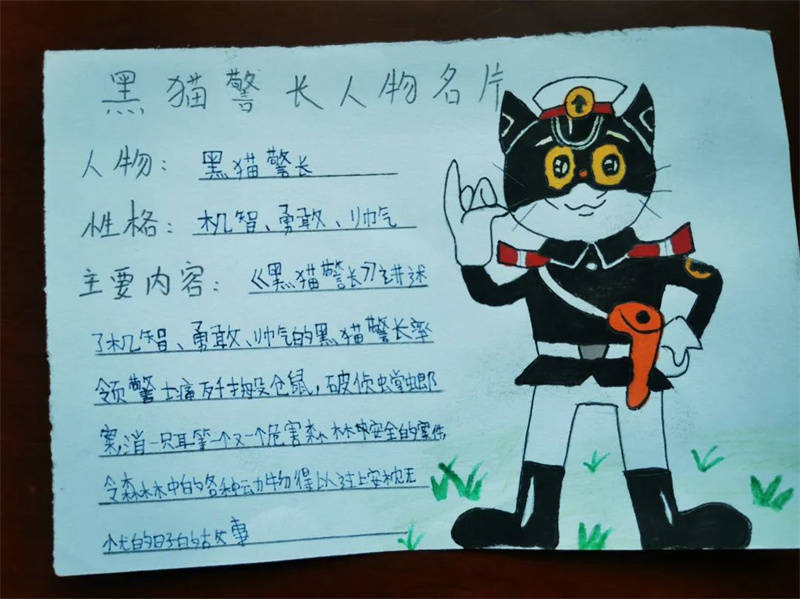 黑猫警长人物名片
人物：黑猫警长
性格：机智、勇敢、帅气
主要内容：《黑猫警长》讲述
了机智、勇敢、帅气的黑猫警长率
领警士痛歼搬仓鼠，破侦螳螂
案，消一只耳等一个又一个危害森林中安全的案件，
令森林中的各种动物得以过上安枕无
忧的日子的故事